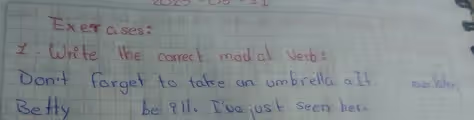 Exercises:
1. Write the correct modal verb:
Don't forget to take an umbrella. It
Betty be ill. I've just seen her.